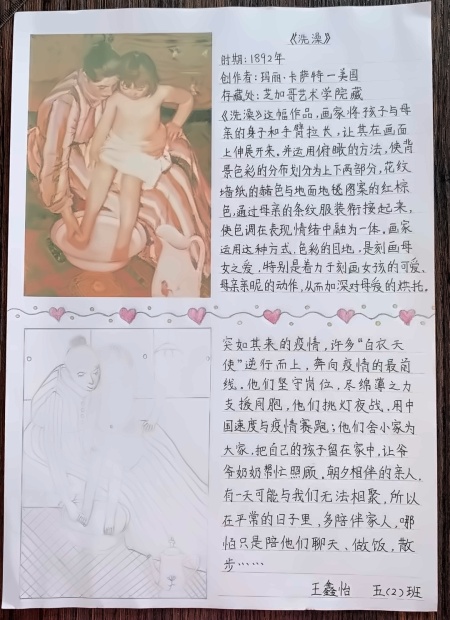 《洗澡》
时期:1892年
创作者:玛丽·卡萨特一美国
存藏处:芝加哥艺术学院藏
《洗澡》这幅作品,画家将孩子与母
亲的身子和手臂拉长,让其在画面
上伸展开来,并运用俯瞰的方法,使背
景色彩的分布划分为上下两部分,花纹
墙纸的赭色与地面地毯图案的红棕
色,通过母亲的条纹服装衔接起来,
使色调在表现情绪中融为一体,画家
运用这种方式、色彩的目地,是刻画母
女之爱,特别是着力于刻画女孩的可爱、
母亲亲昵的动作,从而加深对母爱的烘托。
突如其来的疫情,许多“白衣天
使”逆行而上,奔向疫情的最前
线,他们坚守岗位,尽绵薄之力
支援同胞,他们挑灯夜战,用中
国速度与疫情赛跑;他们舍小家为
大家,把自己的孩子留在家中,让爷
爷奶奶帮忙照顾,朝夕相伴的亲人,
有一天可能与我们无法相聚,所以
在平常的日子里,多陪伴家人,哪
怕只是陪他们聊天、做饭,散
步……
王鑫怡 五(2)班